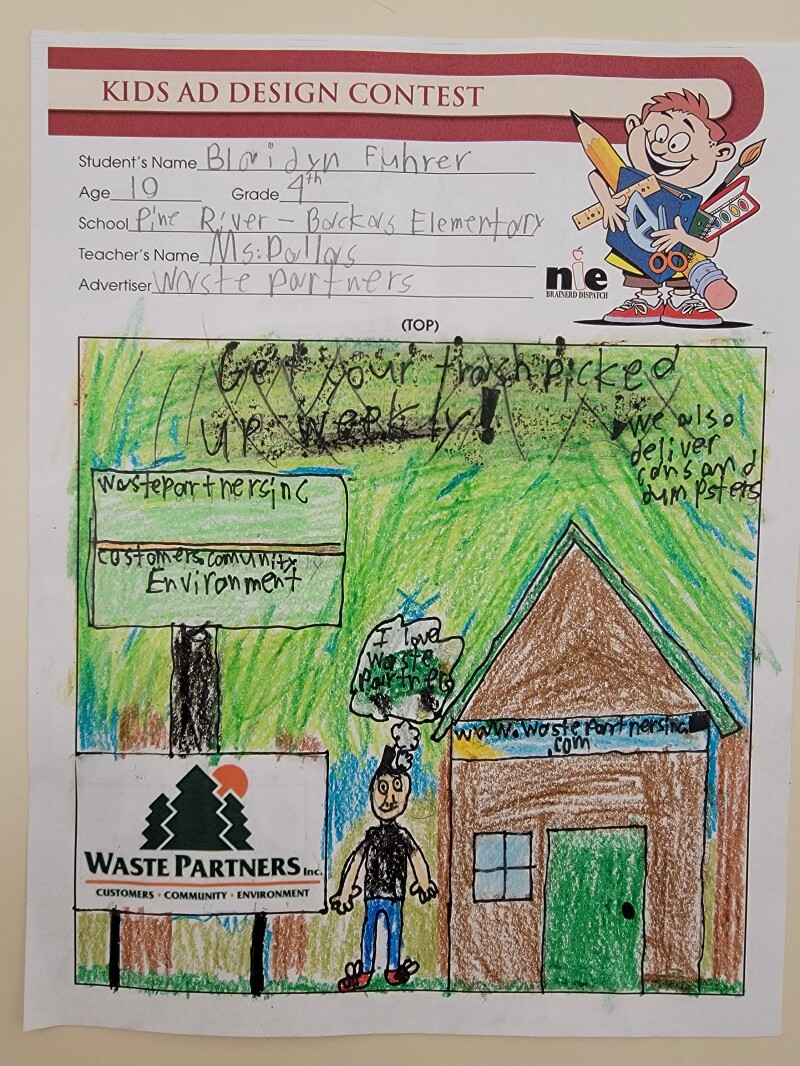 KIDS AD DESIGN CONTEST
Student's Name Blaridyn Fuhrer
Age 10 Grade 4th
School Pine River - Backas Elementary
Teacher's Name Ms. Dallas
Advertiser Waste partners
nie
BRAINERD DISPATCH
(TOP)
Get your trash picked
up weekly!
we also
deliver
cans and
dumpsters
wastepartnersinc
customers.comunity
Environment
I love
Waste
Partners
www.wastepartnersinc
.com
WASTE PARTNERS Inc.
CUSTOMERS • COMMUNITY • ENVIRONMENT